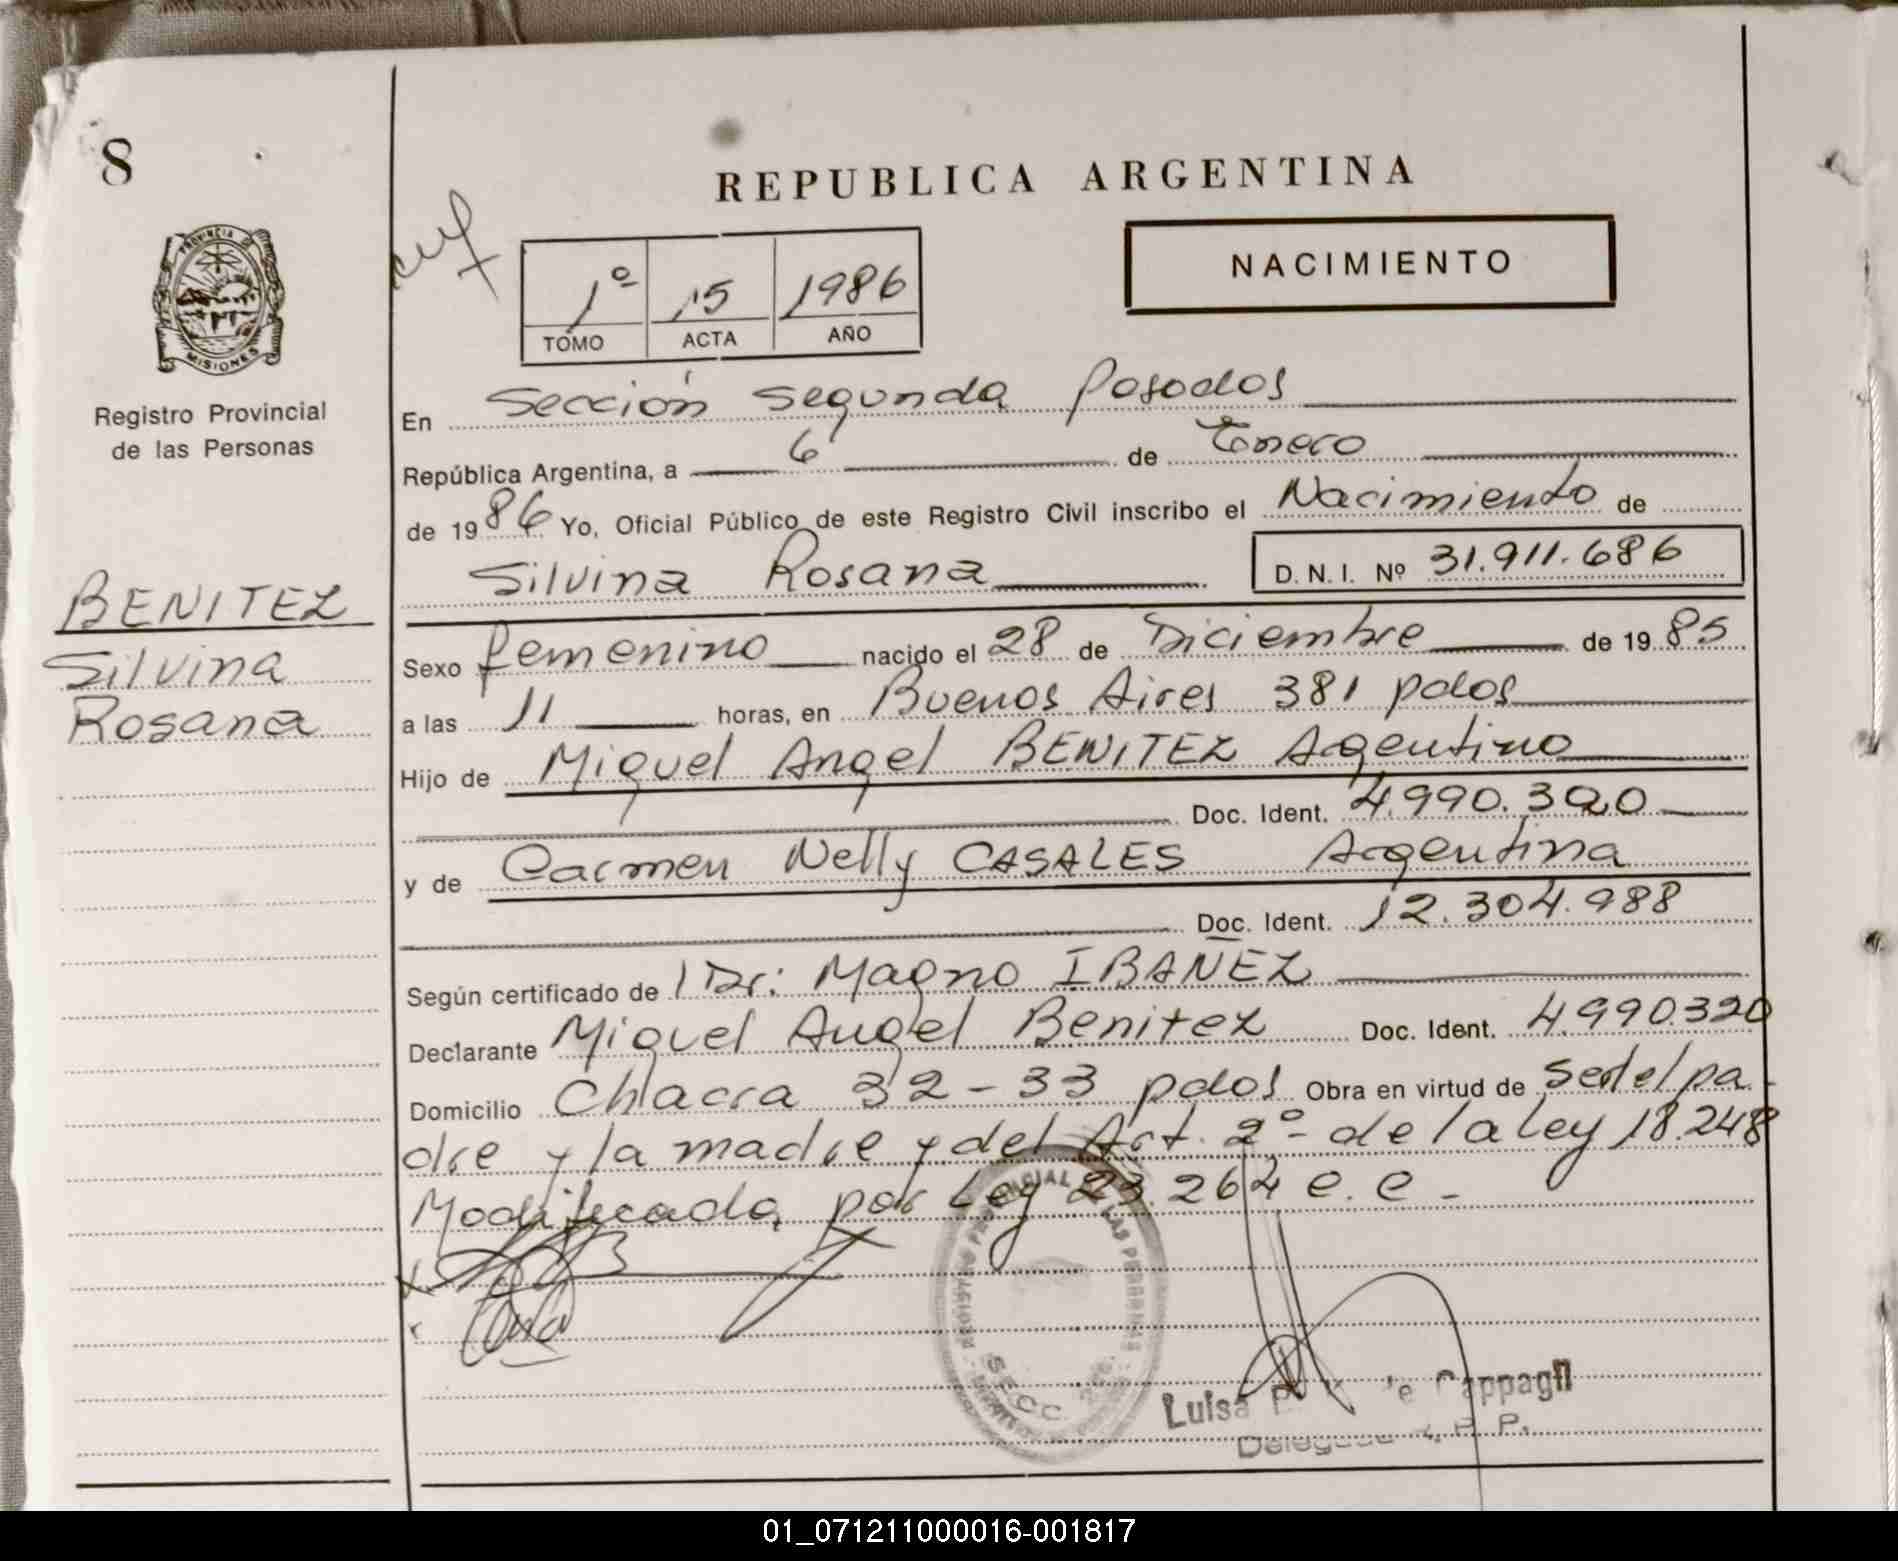 8
REPUBLICA ARGENTINA
PROVINCIA DE
MISIONES
1º 15 1986
TOMO ACTA AÑO
NACIMIENTO
Registro Provincial
de las Personas
En Sección Segunda Posadas
República Argentina, a 6 de Enero
de 1986 Yo, Oficial Público de este Registro Civil inscribo el Nacimiento de
Silvina Rosana D.N.I. Nº 31.911.686
BENITEZ
Silvina
Rosana
Sexo femenino nacido el 28 de Diciembre de 1985
a las 11 horas, en Buenos Aires 381 pdas
Hijo de Miguel Angel BENITEZ Agentino
Doc. Ident. 4.990.320
y de Carmen Nelly CASALES Argentina
Doc. Ident. 12.304.988
Según certificado de Dr: Magno IBAÑEZ
Declarante Miguel Angel Benitez Doc. Ident. 4.990.320
Domicilio Chacra 32-33 pdas Obra en virtud de ser el pa-
dre y la madre y del Art. 2º de la ley 18.248
Modificada por Ley 23.264 e.e-
REGISTRO PROVINCIAL DE LAS PERSONAS
SECC.
Luisa Cappagli
Delegada R. P. P.
01_071211000016-001817